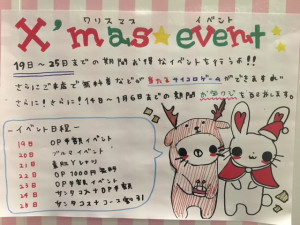 クリスマス イベント
X'mas★event
19日〜25日までの期間お得なイベントを行うよ!!
さらにご来店で無料券などが当たるサイコロゲームができますよ
さらに!さらに!14日〜1月6日までの期間
－イベント日程－
19日 OP半額イベント
20日 ブルマイベント
21日
22日 OP1000円無料
23日 OP半額イベント
24日 サンタコスナOP半額
25日 サンタコスナコース割引